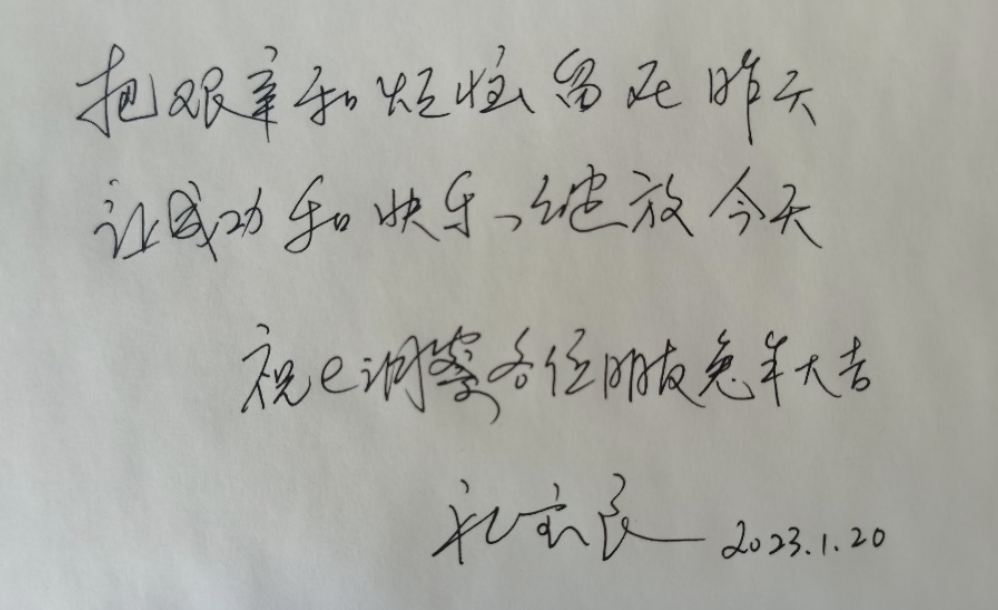 把艰辛和烦恼留在昨天
让成功和快乐、绽放今天
祝e调察各位朋友兔年大吉
礼宝良 2023.1.20